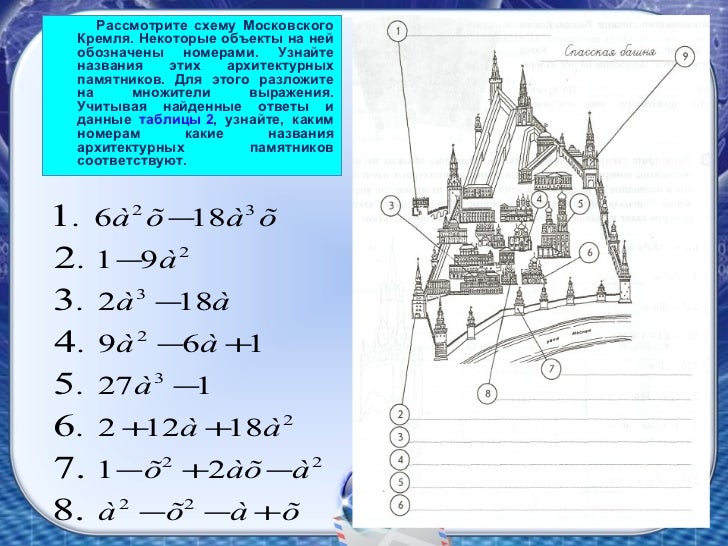 Рассмотрите схему Московского
Кремля. Некоторые объекты на ней
обозначены номерами. Узнайте
названия этих архитектурных
памятников. Для этого разложите
на множители выражения.
Учитывая найденные ответы и
данные таблицы 2, узнайте, каким
номерам какие названия
архитектурных памятников
соответствуют.
1. 6à²õ−18à³õ
2. 1−9à²
3. 2à³−18à
4. 9à²−6à+1
5. 27à³−1
6. 2+12à+18à²
7. 1−õ²+2àõ−à²
8. à²−õ²−à+õ
1
Спасская башня
9
3
4
5
6
река Москва
7
8
2
3
4
5
6